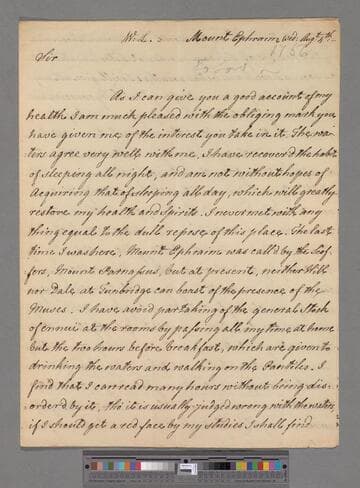 Mount Ephraim Wed. Augt 4th
1756
Sir
As I can give you a good account of my
health I am much pleased with the obliging mark you
have given me of the interest you take in it. The wa-
ters agree very well with me, I have recover'd the habit
of sleeping all night, and am not without hopes of
acquiring that of sleeping all day, which will greatly
restore my health and spirits. I never met with any
thing equal to the dull repose of this place. The last
time I was here, Mount Ephraim was call'd by the Scof-
fers, Mount Parnassus, but at present, neither Hill
nor Dale at Tunbridge can boast of the presence of the
Muses. I have avoid partaking of the general Stock
of ennui at the rooms by passing all my time at home
but the two hours before breakfast, which are given to
drinking the waters and walking on the Pantiles. I
find that I can read many hours without being dis-
order'd by it, tho' it is usually judged wrong with the waters,
if I should get a red face by my studies I shall find